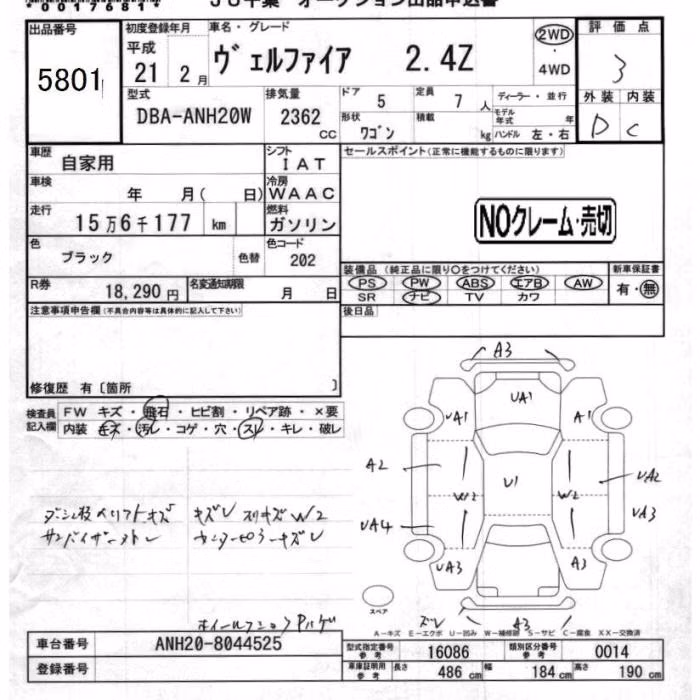 00176811
ＪＵ千葉 オークション出品申込書
出品番号
5801
初度登録年月
平成
21 2 月
車名・グレード
ヴェルファイア 2.4Z
2WD
・
4WD
評価点
3
外装 内装
D C
型式
DBA-ANH20W
排気量
2362
cc
ドア 5
定員 7 人
ディーラー・並行
形状 ワゴン
積載 kg
モデル年式 年
ハンドル 左・右
車歴 自家用
シフト IAT
車検 年 月( 日)
冷房 WAAC
走行 15万6千177 km
燃料 ガソリン
色 ブラック 色替
色コード 202
R券 18,290 円
名変通知期限 月 日
セールスポイント(正常に機能するものに限ります)
NOクレーム・売切
装備品(純正品に限り○をつけてください)
新車保証書
PS PW ABS エアB AW
SR ナビ TV カワ
有・無
後日品
注意事項申告欄(不具合内容等は具体的に記入して下さい)
修復歴 有〔箇所 〕
検査員記入欄
FW キズ・飛石・ヒビ割・リペア跡・×要
内装 キズ・汚レ・コゲ・穴・スレ・キレ・破レ
A3
UA1
UA1 A1
A2 W2 U1 W2 UA2
UA4 UA3
UA3 A3
スペア
ズレ A3
キズレ スリキズ W2
A－キズ E－エクボ U－凹み W－補修跡 S－サビ C－腐食 XX－交換済
車台番号 ANH20-8044525
登録番号
型式指定番号 参考 16086
類別区分番号 参考 0014
車庫証明用 参考 長さ 486 cm 幅 184 cm 高さ 190 cm